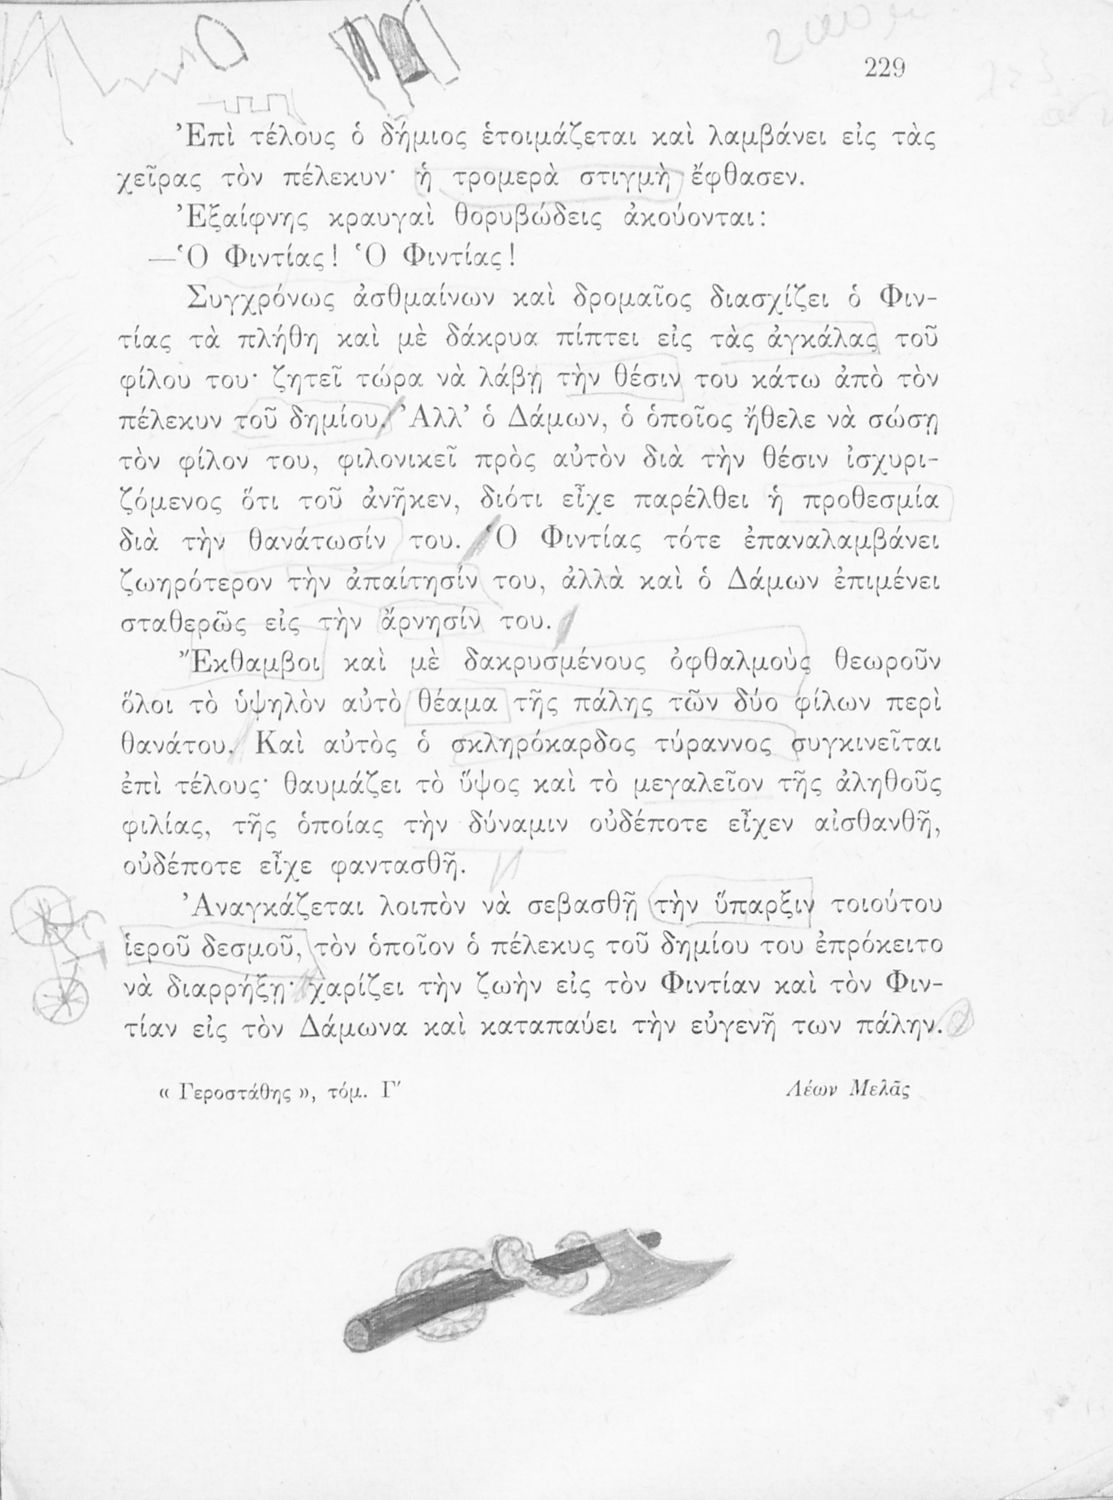 229
Ἐπὶ τέλους ὁ δήμιος ἑτοιμάζεται καὶ λαμβάνει εἰς τὰς
χεῖρας τὸν πέλεκυν· ἡ τρομερὰ στιγμὴ ἔφθασεν.
Ἐξαίφνης κραυγαὶ θορυβώδεις ἀκούονται:
—Ὁ Φιντίας! Ὁ Φιντίας!
Συγχρόνως ἀσθμαίνων καὶ δρομαῖος διασχίζει ὁ Φιν-
τίας τὰ πλήθη καὶ μὲ δάκρυα πίπτει εἰς τὰς ἀγκάλας τοῦ
φίλου του· ζητεῖ τώρα νὰ λάβῃ τὴν θέσιν του κάτω ἀπὸ τὸν
πέλεκυν τοῦ δημίου. Ἀλλ’ ὁ Δάμων, ὁ ὁποῖος ἤθελε νὰ σώσῃ
τὸν φίλον του, φιλονικεῖ πρὸς αὐτὸν διὰ τὴν θέσιν ἰσχυρι-
ζόμενος ὅτι τοῦ ἀνῆκεν, διότι εἶχε παρέλθει ἡ προθεσμία
διὰ τὴν θανάτωσίν του. Ὁ Φιντίας τότε ἐπαναλαμβάνει
ζωηρότερον τὴν ἀπαίτησίν του, ἀλλὰ καὶ ὁ Δάμων ἐπιμένει
σταθερῶς εἰς τὴν ἄρνησίν του.
Ἔκθαμβοι καὶ μὲ δακρυσμένους ὀφθαλμοὺς θεωροῦν
ὅλοι τὸ ὑψηλὸν αὐτὸ θέαμα τῆς πάλης τῶν δύο φίλων περὶ
θανάτου. Καὶ αὐτὸς ὁ σκληρόκαρδος τύραννος συγκινεῖται
ἐπὶ τέλους· θαυμάζει τὸ ὕψος καὶ τὸ μεγαλεῖον τῆς ἀληθοῦς
φιλίας, τῆς ὁποίας τὴν δύναμιν οὐδέποτε εἶχεν αἰσθανθῆ,
οὐδέποτε εἶχε φαντασθῆ.
Ἀναγκάζεται λοιπὸν νὰ σεβασθῇ τὴν ὕπαρξιν τοιούτου
ἱεροῦ δεσμοῦ, τὸν ὁποῖον ὁ πέλεκυς τοῦ δημίου του ἐπρόκειτο
νὰ διαρρήξῃ· χαρίζει τὴν ζωὴν εἰς τὸν Φιντίαν καὶ τὸν Φιν-
τίαν εἰς τὸν Δάμωνα καὶ καταπαύει τὴν εὐγενῆ των πάλην.
« Γεροστάθης », τόμ. Γ′ Λέων Μελᾶς